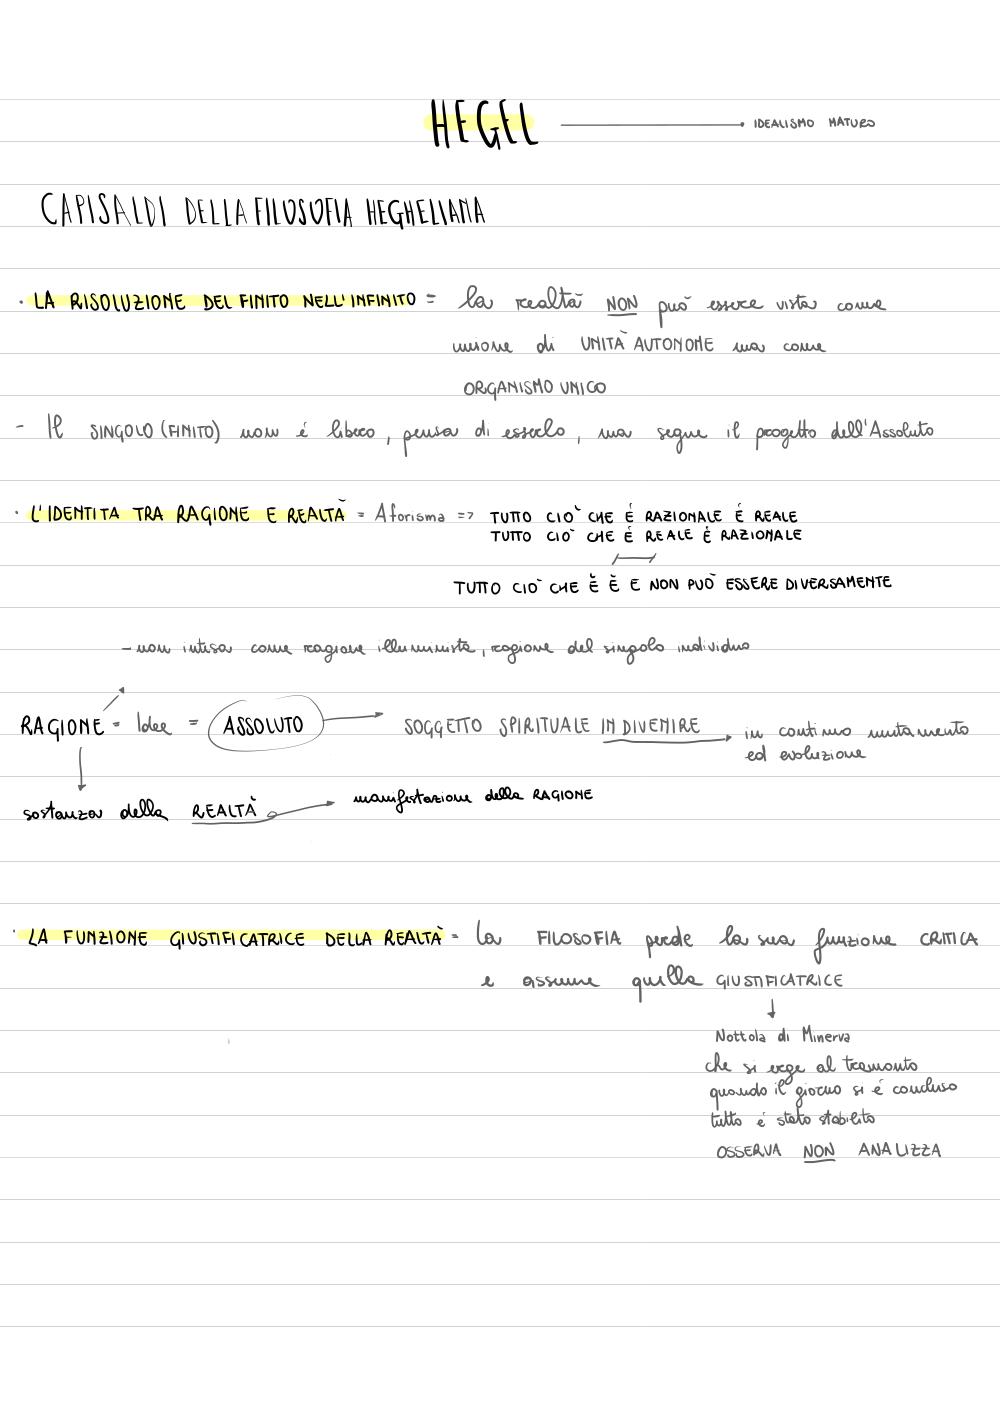 HEGEL IDEALISMO MATURO
CAPISALDI DELLA FILOSOFIA HEGHELIANA
· LA RISOLUZIONE DEL FINITO NELL'INFINITO = la realtà NON può essere vista come
unione di UNITÀ AUTONOME ma come
ORGANISMO UNICO
- Il SINGOLO (FINITO) non é libero, pensa di esserlo, ma segue il progetto dell'Assoluto
· L'IDENTITA TRA RAGIONE E REALTÀ = Aforisma => TUTTO CIO' CHE É RAZIONALE É REALE
TUTTO CIO' CHE É REALE É RAZIONALE
TUTTO CIO' CHE È È E NON PUÒ ESSERE DIVERSAMENTE
- non intesa come ragione illuminista, ragione del singolo individuo
RAGIONE = Idea = ASSOLUTO SOGGETTO SPIRITUALE IN DIVENIRE in continuo mutamento
ed evoluzione
sostanza della REALTÀ manifestazione della RAGIONE
· LA FUNZIONE GIUSTIFICATRICE DELLA REALTÀ = La FILOSOFIA perde la sua funzione CRITICA
e assume quella GIUSTIFICATRICE
Nottola di Minerva
che si erge al tramonto
quando il giorno si é concluso
tutto é stato stabilito
OSSERVA NON ANALIZZA